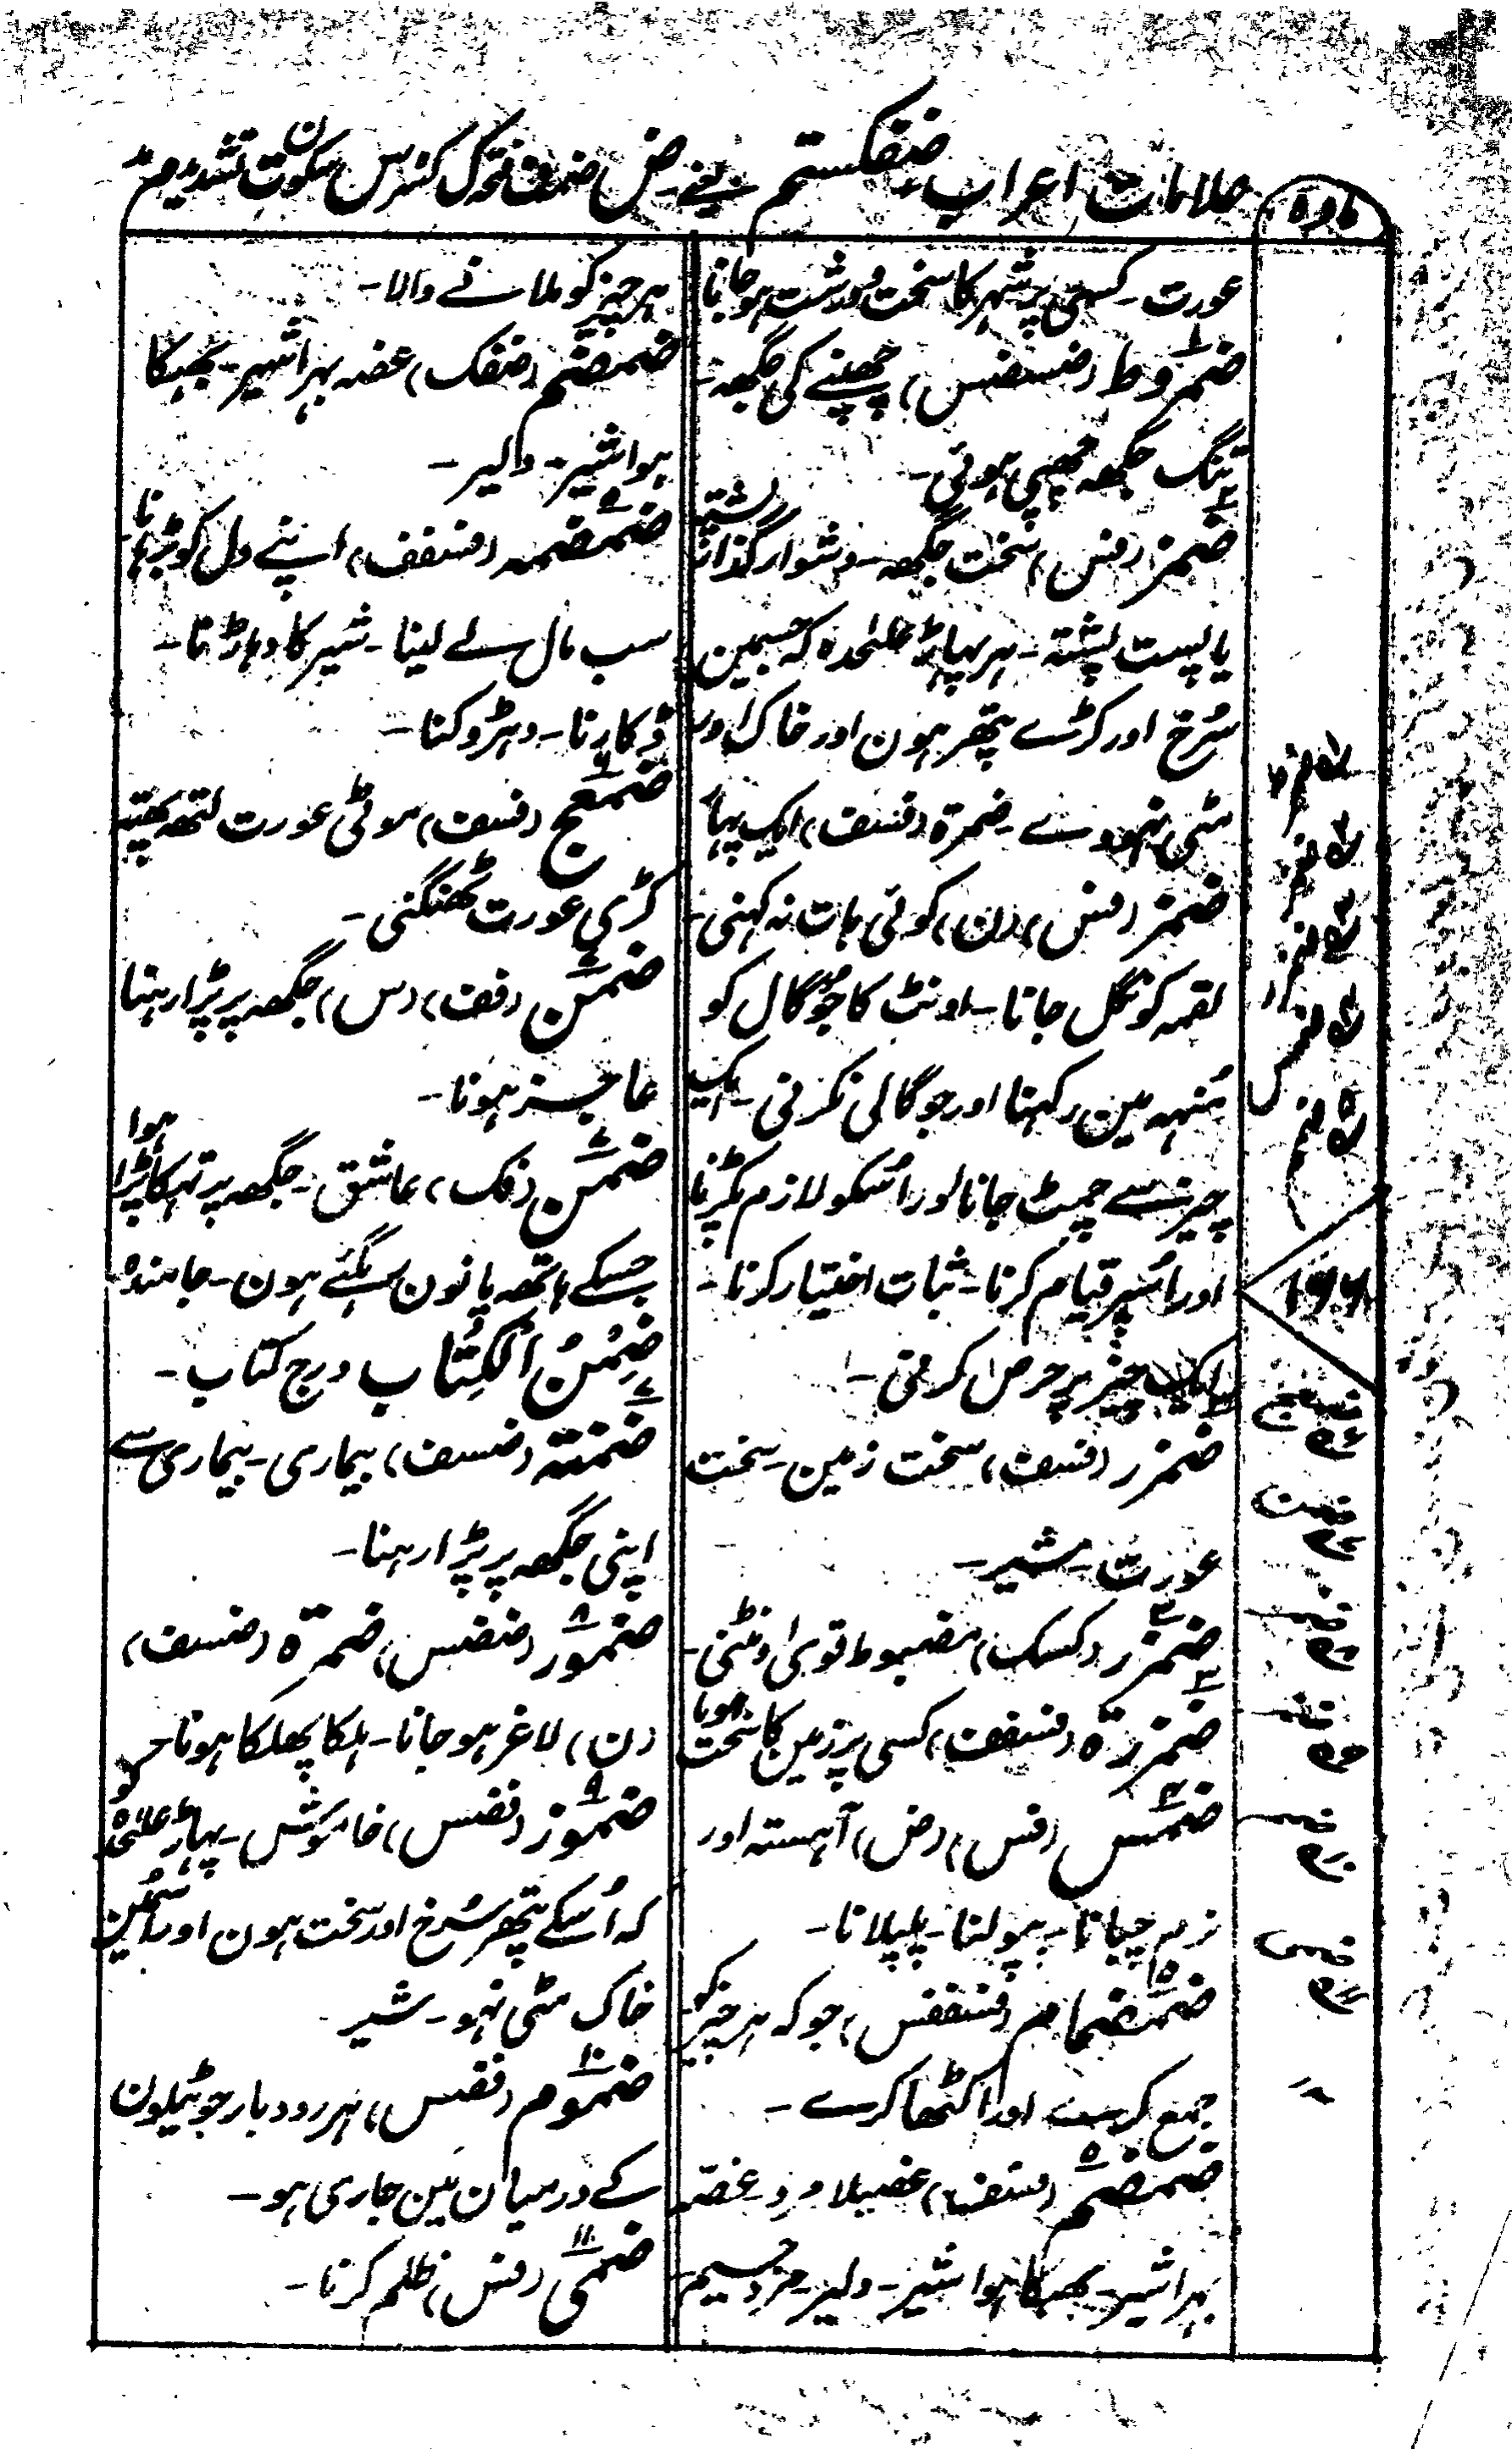 علامات اعراب ضفکستم یعنے ض ضمہ ف فتحہ ک کسرہ س سکون ت تشدید م مد
مادہ
عورت - کسی پر شہر کا سخت و درشت ہو جانا
ضمروط (ضسضس) چھپنے کی جگہہ -
تنگ جگہہ چھپی ہوئی -
ضمز (فس) سخت جگہہ - دشوار گذار پشتہ
یا پست پشتہ - ہر پہاڑ علٰحدہ کہ جسمین
سُرخ اور کڑے پتھر ہون اور خاک اور
مٹی نہووے - ضمزة (فسف) ایک پہاڑ
ضمز (فس) (ن) کوئی بات نہ کہنی -
لقمہ کو نگل جانا - اونٹ کا جُوگال کو
مُنہہ مین رکہنا اور جوگالی نکرنی - ایک
چیز سے چمٹ جانا اور اُسکو لازم پکڑنا
اور اُسپر قیام کرنا - ثبات اختیار کرنا -
ایک چیز پر حرص کرنی -
ضمزر (فسف) سخت زمین - سخت
عورت - شیر -
ضمزر (کسک) مضبوط قوی اونٹنی -
ضمزرة (فسفف) کسی پر زمین کا سخت ہونا
ضمس (فس) (ض) آہستہ اور
نرم چبانا - پپولنا - پلپلانا -
ضمضام (فسففس) جو کہ ہر چیز کو
جمع کرے اور اکٹھا کرے -
ضمضم (فسف) غضیلا مرد - غصّہ
بہرا شیر - بھبکا ہوا شیر - دلیر - مرد جسیم
ہر چیز کو ملانے والا -
ضمضم (ضفک) غصہ بہرا شیر - بھبکا
ہوا شیر - دلیر -
ضمضمہ (فسفف) اپنے دل کو بڑہانا
سب مال لے لینا - شیر کا دہاڑنا -
ڈکارنا - دہڑوکنا -
ضمعج (فسف) موٹی عورت لتھہ پتھہ
کڑی عورت ٹھنگنی -
ضمَن (فف) (س) جگہہ پر پڑا رہنا
عاجز ہونا -
ضمن (فک) عاشق - جگہہ پر تہکا پڑا ہوا
جسکے ہاتھہ پانون رہگئے ہون - جامندہ
ضِمْنُ الْکِتَاب درج کتاب -
ضمنة (ضسف) بیماری - بیماری سے
اپنی جگہہ پر پڑا رہنا -
ضمور (ضضس) ضمرة (ضسف)
(ن) لاغر ہو جانا - ہلکا پھلکا ہونا
ضموز (فضس) خاموش - پہاڑ علٰحدہ
کہ اُسکے پتھر سُرخ اور سخت ہون اور اُسمین
خاک مٹی نہو - شیر -
ضموم (فضس) ہر رودبار جو ٹیلون
کے درمیان مین جاری ہو -
ضمی (فس) ظلم کرنا -